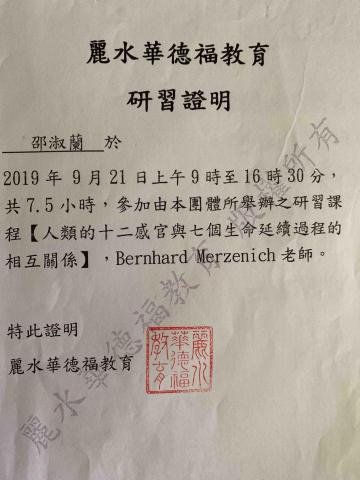 麗水華德福教育
研習證明
邵淑蘭 於
2019 年 9 月 21 日上午 9 時至 16 時 30 分，
共 7.5 小時，參加由本團體所舉辦之研習課
程【人類的十二感官與七個生命延續過程的
相互關係】，Bernhard Merzenich 老師。
特此證明
麗水華德福教育
麗水華德福教育
麗水華德福教育 版權所有